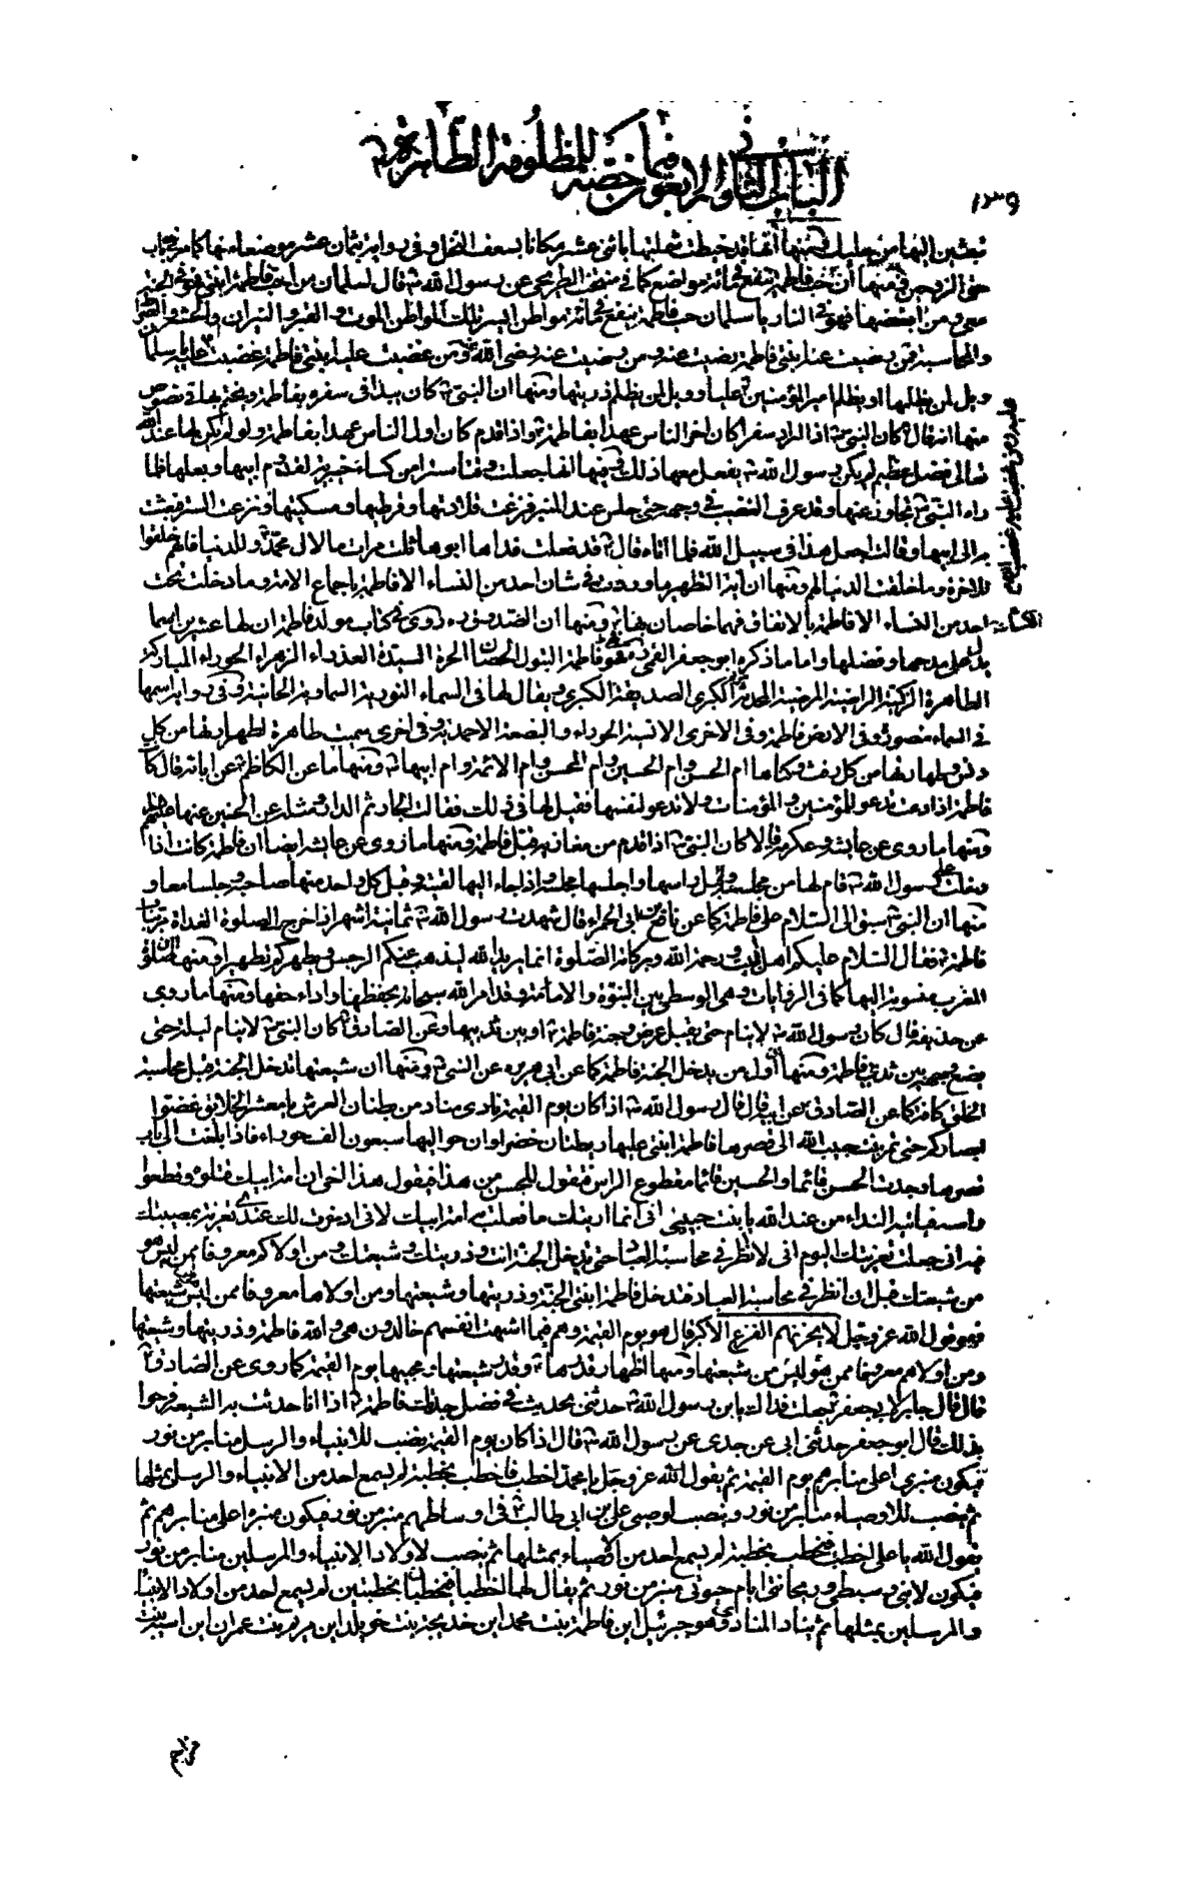 الباب الثانی والاربعون فیما خصّ به للمظلومة الطاهرة
۱۳۹
حتی الزوجین ومنها أن حب فاطمة ینفع فی مائة مواضع کما فی منتخب الطریحی عن رسول الله ص قال لسلمان من احب فاطمة ابنتی فهو فی الجنة
معی ومن ابغضها فهو فی النار یا سلمان حب فاطمة ینفع فی مائة مواطن ایسر تلک المواطن الموت والقبر والمیزان والحشر والصراط
والمحاسبة فمن رضیت عنه ابنتی فاطمة رضیت عنه ومن رضیت عنه رضی الله عنه ومن غضبت علیه ابنتی فاطمة غضبت علیه یا سلمان
ویل لمن یظلمها او یظلم امیر المؤمنین علیا وویل لمن یظلم ذریتها ومنها ان النبی ص کان یبدأ فی سفره بفاطمة ویختم بها
منها انه قال کان النبی ص اذا اراد سفرا کان اخر الناس عهدا بفاطمة واذا قدم کان اول الناس عهدا بفاطمة ولو لم یکن لها عند الله
تعالی فضل عظیم لم یکن رسول الله ص یفعل معها ذلک ومنها انها جعلت سترا من کساء خیبریة لقدوم ابیها وبعلها فلما
راه النبی ص تجاوز عنها وقد عرف الغضب فی وجهه حتی جلس عند المنبر فنزعت قلادتها وقرطیها ومسکتیها ونزعت الستر فبعثت
به الی ابیها وقالت اجعل هذا فی سبیل الله فلما اتاه قال ص قد فعلت فداها ابوها ثلث مرات ما لال محمد وللدنیا فانهم خلقوا
للاخرة وما خلقت الدنیا لهم ومنها ان آیة التطهیر ما وردت فی شان احد من النساء الا فاطمة باجماع الامة وما دخلت تحت
الکساء احد من النساء الا فاطمة بالاتفاق فهما خاصان بها ومنها ان الصدوق ره روی فی کتاب مولد فاطمة ان لها عشرین اسما
یدل علی مدحها وفضلها واما ما ذکره ابو جعفر القمی فاطمة البتول الحصان الحرة السیدة العذراء الزهراء الحوراء المبارکة
الطاهرة الزکیة الراضیة المرضیة المحدثة مریم الکبری الصدیقة الکبری ویقال لها فی السماء النوریة السماویة الحانیة وفی روایة اسمها
فی السماء منصورة وفی الارض فاطمة وفی الاخری الانسیة الحوراء والبضعة الاحمدیة وفی اخری سمیت طاهرة لطهارتها من کل
دنس وطهارتها من کل رفث وکناها ام الحسن وام الحسین وام المحسن وام الائمة وام ابیها ص ومنها ما عن الکاظم عن ابائه قال کانت
فاطمة اذا دعت تدعو للمؤمنین والمؤمنات ولا تدعو لنفسها فقیل لها فی ذلک فقالت الجار ثم الدار
ومنها ما روی عن عایشة وعکرمة قالا کان النبی ص اذا قدم من مغازیه قبل فاطمة ومنها ما روی عن عایشة ایضا ان فاطمة کانت اذا
دخلت علی رسول الله ص قام لها من مجلسه وقبل راسها واجلسها مجلسه واذا جاء الیها لقیته وقبل کل واحد منهما صاحبه وجلسا معا و
منها ان النبی ص سبق الی السلام علی فاطمة کما عن نافع بن ابی الحمراء قال شهدت رسول الله ص ثمانیة اشهر اذا خرج الصلوة الغداة مر بباب
فاطمة فقال السلام علیکم اهل البیت ورحمة الله وبرکاته الصلوة انما یرید الله لیذهب عنکم الرجس ویطهرکم تطهیرا ومنها ان صلوة
المغرب منسوبة الیها کما فی الروایات وهی الوسطی بین النبوة والامامة وقد امر الله سبحانه بحفظها واداء حقها ومنها ما روی
عن حذیفة قال کان رسول الله ص لا ینام حتی یقبل عرض وجنة فاطمة ع او بین ثدییها وعن الصادق ع کان النبی ص لا ینام لیلة حتی
یضع وجهه بین ثدیی فاطمة ومنها أول من یدخل الجنة فاطمة کما عن ابی هریره عن النبی ص ومنها ان شیعتها تدخل الجنة قبل محاسبة
الخلق کافة کما عن الصادق عن ابیه قال قال رسول الله ص اذا کان یوم القیمة نادی مناد من بطنان العرش یا معشر الخلایق غضوا
ابصارکم حتی تمر بنت حبیب الله الی قصرها فاطمة ابنتی علیها ریطتان خضراوان حوالیها سبعون الف حوراء فاذا بلغت الی باب
قصرها وجدت الحسن قائما والحسین قائما مقطوع الراس فتقول للحسن من هذا فیقول هذا اخی ان امة ابیک قتلوه وقطعوا
راسه فیاتیه النداء من عند الله یا بنت حبیبی انی انما اریتک ما فعلت به امة ابیک لانی ادخرت لک عندی تعزیة بمصیبتک
فیه انی جعلت تعزیتک الیوم انی لا انظر فی محاسبة العباد حتی تدخل الجنة انت وذریتک وشیعتک ومن اولاکم معروفا ممن لیس هو
من شیعتک قبل ان انظر فی محاسبة العباد فتدخل فاطمة ابنتی الجنة وذریتها وشیعتها ومن اولاها معروفا ممن لیس من شیعتها
فهو قول الله عز وجل لا یحزنهم الفزع الاکبر قال هو یوم القیمة وهم فیما اشتهت انفسهم خالدون هی والله فاطمة وذریتها وشیعتها
ومن اولاهم معروفا ممن هو لیس من شیعتها ومنها اظهار قدرها ص وقدر شیعتها ومحبیها یوم القیمة کما روی عن الصادق ع
قال قال جابر لابی جعفر ع جعلت فداک یابن رسول الله ص حدثنی بحدیث فی فضل جدتک فاطمة ع اذا انا حدثت به الشیعة فرحوا
بذلک قال ابو جعفر حدثنی ابی عن جدی عن رسول الله ص قال اذا کان یوم القیمة ینصب للانبیاء والرسل منابر من نور
فیکون منبری اعلی منابرهم یوم القیمة ثم یقول الله عز وجل یا محمد اخطب فاخطب بخطبة لم یسمع احد من الانبیاء والرسل بمثلها
ثم ینصب للاوصیاء منابر من نور وینصب لوصیی علی بن ابی طالب ع فی اوساطهم منبر من نور فیکون منبره اعلی منابرهم ثم
یقول الله یا علی اخطب فیخطب بخطبة لم یسمع احد من الاوصیاء بمثلها ثم ینصب لاولاد الانبیاء والمرسلین منابر من نور
فیکون لابنی وسبطی وریحانتی ایام حیوتی منبر من نور ثم یقال لهما اخطبا فیخطبان بخطبتین لم یسمع احد من اولاد الانبیاء
والمرسلین بمثلها ثم ینادی المنادی وهو جبرئیل این فاطمة بنت محمد این خدیجة بنت خویلد این مریم بنت عمران این اسیة بنت
مزاحم